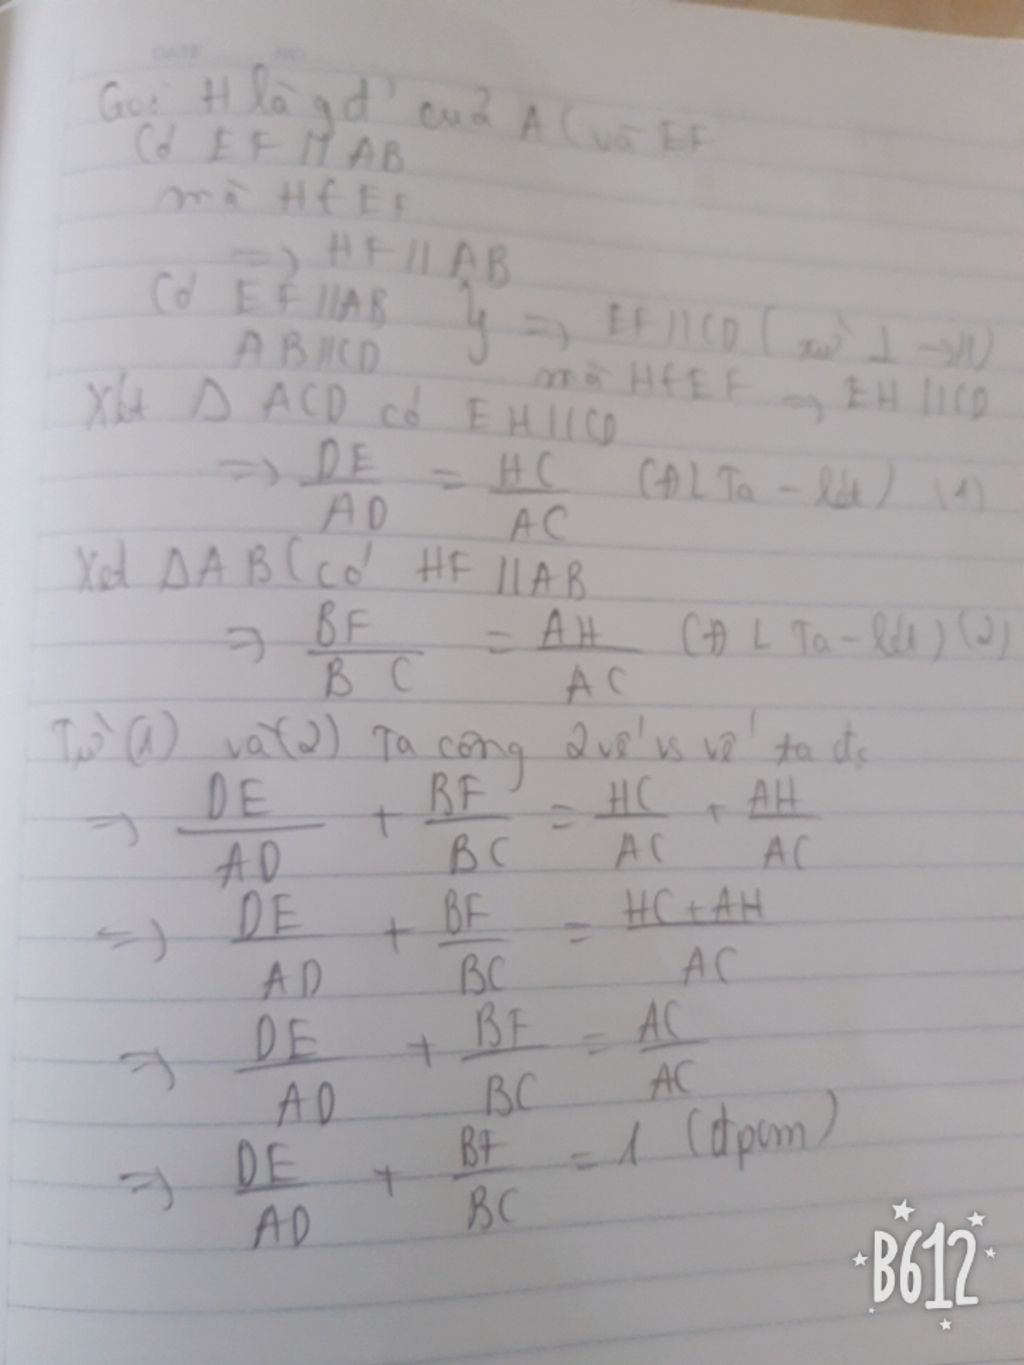 DATE NO
Gọi H là gđ' của AC và EF
Có EF // AB
mà H ∈ EF
=> HF // AB
Có EF // AB } => EF // CD ( từ ⊥ -> // )
AB // CD
mà H ∈ EF => EH // CD
Xét Δ ACD có EH // CD
=> DE/AD = HC/AC (ĐL Ta - lét) (1)
Xét ΔABC có HF // AB
=> BF/BC = AH/AC (ĐL Ta - lét) (2)
Từ (1) và (2) Ta cộng 2 vế vs vế ta đc
=> DE/AD + BF/BC = HC/AC + AH/AC
=> DE/AD + BF/BC = HC + AH/AC
=> DE/AD + BF/BC = AC/AC
=> DE/AD + BF/BC = 1 (đpcm)
B612